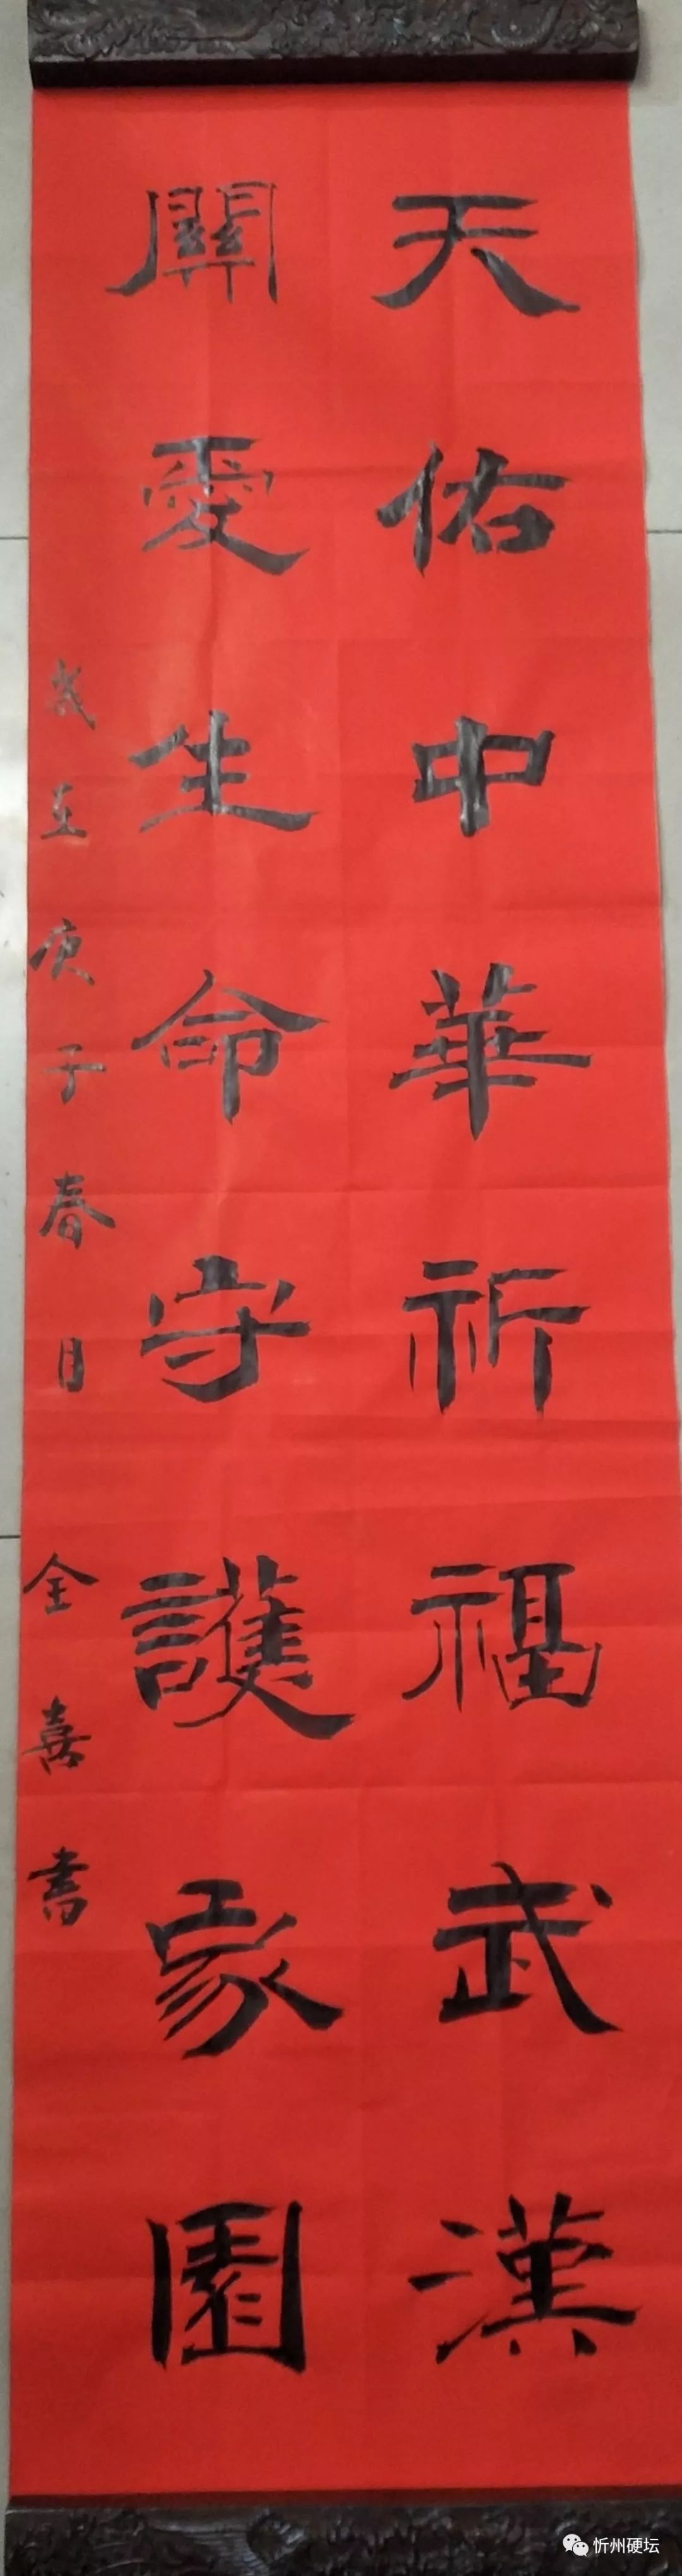 天佑中華祈福武漢
關愛生命守護家園
歲在庚子春月全喜書
忻州硬坛